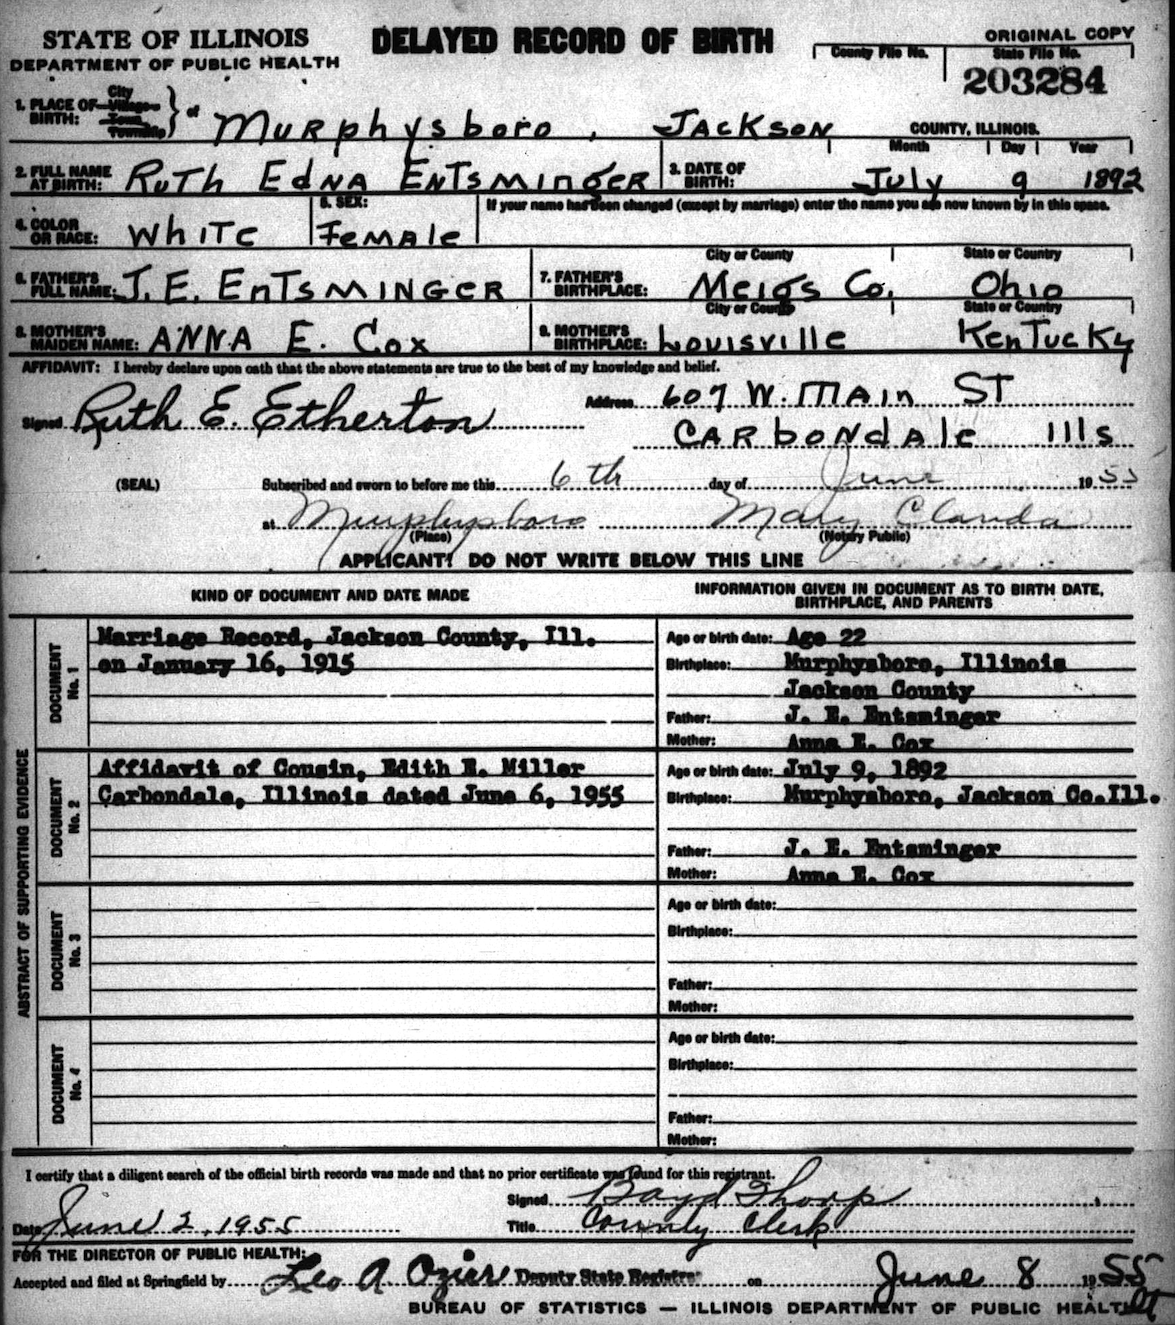 STATE OF ILLINOIS
DEPARTMENT OF PUBLIC HEALTH
DELAYED RECORD OF BIRTH
ORIGINAL COPY
County File No. State File No.
203284
1. PLACE OF BIRTH: City Village Town Township } of Murphysboro, Jackson COUNTY, ILLINOIS.
2. FULL NAME AT BIRTH: Ruth Edna Entsminger 3. DATE OF BIRTH: Month Day Year July 9 1892
4. COLOR OR RACE: White 5. SEX: Female If your name has been changed (except by marriage) enter the name you are now known by in this space.
6. FATHER'S FULL NAME: J. E. Entsminger 7. FATHER'S BIRTHPLACE: City or County State or Country Meigs Co. Ohio
8. MOTHER'S MAIDEN NAME: Anna E. Cox 9. MOTHER'S BIRTHPLACE: City or County State or Country Louisville Kentucky
AFFIDAVIT: I hereby declare upon oath that the above statements are true to the best of my knowledge and belief.
Signed Ruth E. Etherton Address 607 W. Main St
Carbondale Ills
(SEAL) Subscribed and sworn to before me this 6th day of June 1955
at Murphysboro Mary
(Place) (Notary Public)
APPLICANT! DO NOT WRITE BELOW THIS LINE
KIND OF DOCUMENT AND DATE MADE
INFORMATION GIVEN IN DOCUMENT AS TO BIRTH DATE, BIRTHPLACE, AND PARENTS
ABSTRACT OF SUPPORTING EVIDENCE
DOCUMENT No. 1
Marriage Record, Jackson County, Ill.
on January 16, 1915
Age or birth date: Age 22
Birthplace: Murphysboro, Illinois
Jackson County
Father: J. E. Entsminger
Mother: Anna E. Cox
DOCUMENT No. 2
Affidavit of Cousin, Edith E. Miller
Carbondale, Illinois dated June 6, 1955
Age or birth date: July 9, 1892
Birthplace: Murphysboro, Jackson Co.Ill.
Father: J. E. Entsminger
Mother: Anna E. Cox
DOCUMENT No. 3
Age or birth date:
Birthplace:
Father:
Mother:
DOCUMENT No. 4
Age or birth date:
Birthplace:
Father:
Mother:
I certify that a diligent search of the official birth records was made and that no prior certificate was found for this registrant.
Signed Boyd Thorp
Date June 2, 1955 Title County Clerk
FOR THE DIRECTOR OF PUBLIC HEALTH:
Accepted and filed at Springfield by Leo A Ozier Deputy State Registrar on June 8 1955
BUREAU OF STATISTICS — ILLINOIS DEPARTMENT OF PUBLIC HEALTH